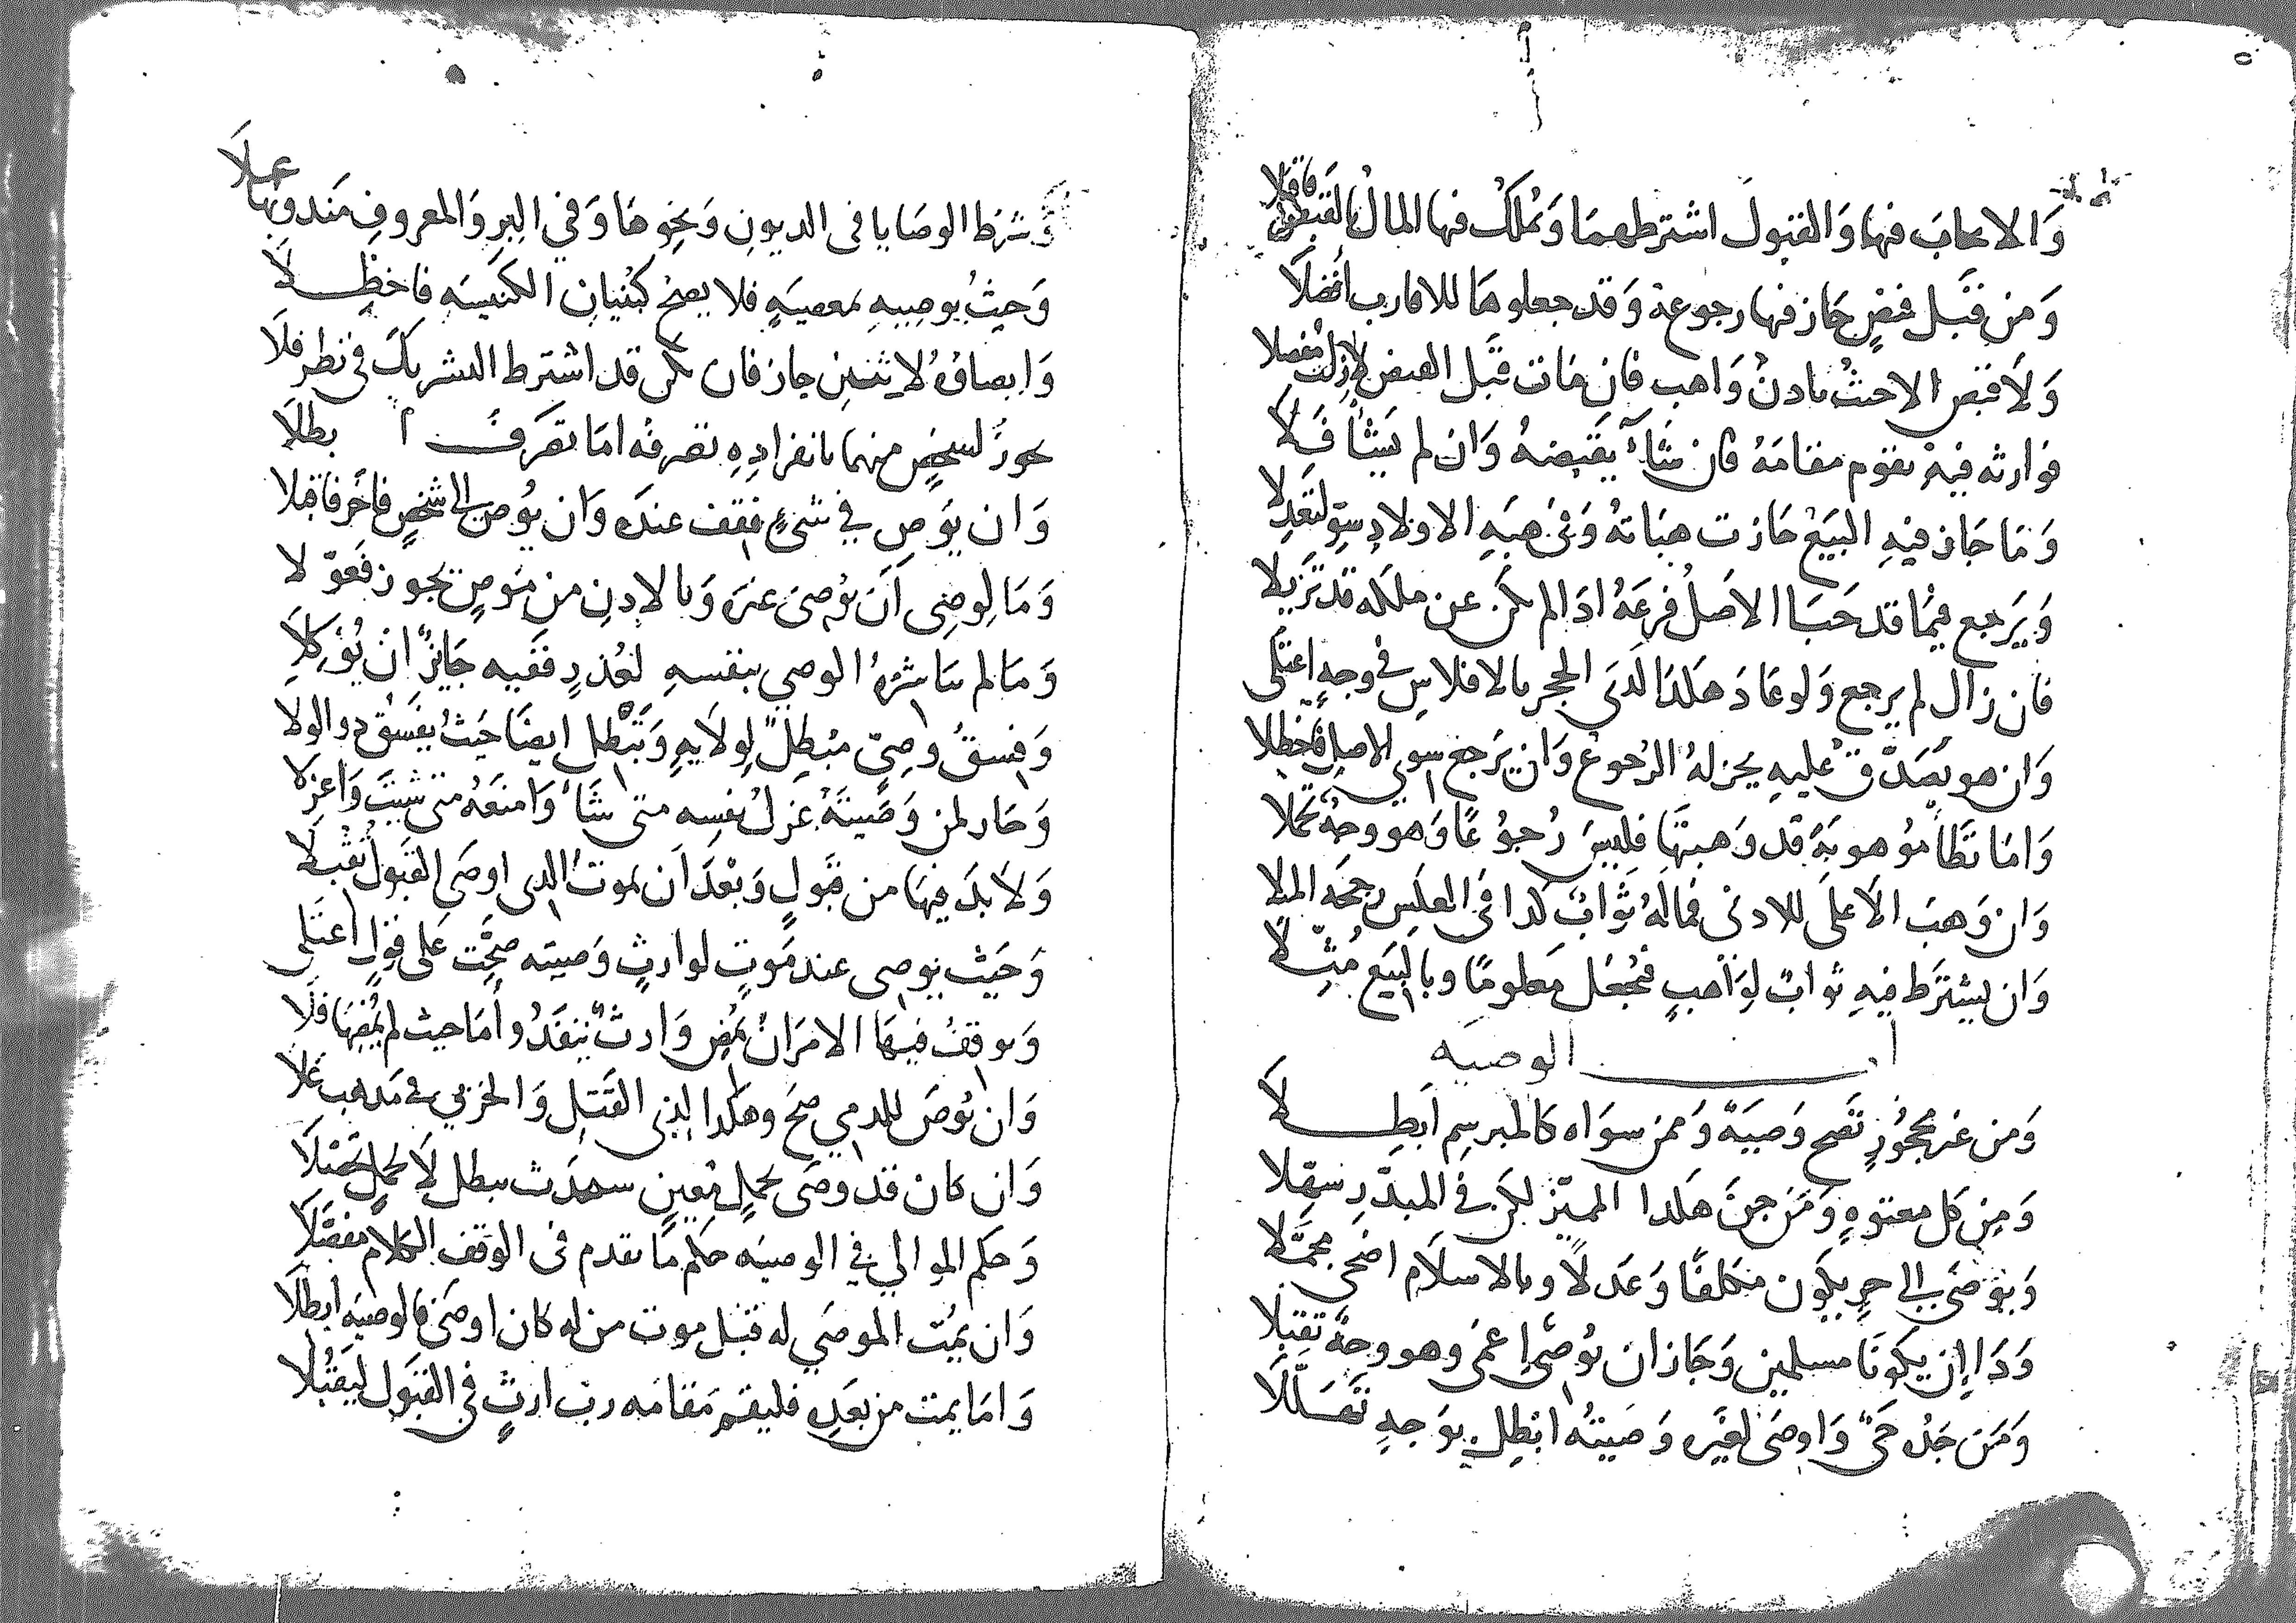 وَالايجابَ فيها وَالقبولَ اشترطهما وَتملكُ فيها المالُ بالقبض فاقبلا
وَمن قبل قبضٍ جَاز فيها رجوعه وَقد جعلوها للاقارب افضلا
وَلا قبض الا حيثُ ياذنُ وَاهب فان مَات قبل القبض لا زلت مفضلا
فوارثه فيهِ يقوم مقامَهُ فان شَآءَ يقبضهُ وَان لم يَشَأْ فَلا
وَمَا جَاز فيهِ البيعُ جَازت هبَاتهُ وَفي هبَةِ الاولادِ سوِّ لتعدِلا
وَيَرجع فيمَا قد حَبَا الاصلُ فرعَهُ اذَا لم يكن عن ملكه قد تزيلا
فان زال لم يرجع وَلو عَادَ هكذا لدَى الحجر بالافلاسِ في وجهٍ اعتلى
وَان هو تصَدَّق عليهِ يجز لهُ الرجوعُ وَان يرَجع سوى الاصل فاحظلا
وَامَا تَطَا موُهوبَة قد وَهبتهَا فليسَ رُجوُعًا وَهو وجهٌ تحملا
وَان وَهبَ الاَعلى للادنى فمالهُ ثوابٌ كذا في العكسِ رجحَه الملا
وَان يشتَرط فيهِ ثوابٌ لوَاهبٍ فيُجعَل مَعلومًا وبالبَيع مُثِّلا
الوصيه
وَمن غير محجُورٍ تصح وَصيَةٌ وَممن سوَاه كالمبرسم اَبطِلا
وَمِن كل معتوهٍ وَمَن جنَ هكذا المميّز لكن في المبذّرِ سهِّلا
وَيوُصَى الى حرٍ يكَون مكلفًا وَعَدلاً وبالاسلام اضحى مجمَّلا
وَذَا اِن يكونَا مسلمين وَجَاز ان يوُصى اعمى وهو وجهٌ تقبلا
وَمَن جَدُه حَيٌّ وَاوصَى لغيَرهِ وَصيتُه ابطِل بوَجهِ
وَشرَط الوصَايا في الديونِ وَنحوِهَا وَفي البِرِ وَالمعروفِ مَندوبها علاَ
وَحيثُ يوصِيهِ بمعصيَةٍ فلا يصحُّ كبُنيانِ الكنيسَه فاحظِلاَ
وَايصاؤهُ لاثنين جاز فان يكن قد اشترط التشريكَ في نظرٍ فلاَ
يجوزُ لشخصٍ منهما بانفرادِهِ تصرفه امَا تصَرَف ابطلاَ
وَان يوَصِ في شيءٍ فقف عندَه وَان يوُصِ الى شخصٍ فاخَر فاقبلا
وَمَا لِوصِى اَن يوُصىَ غيرَه وَبالاِذنِ من مُوصٍ يجوز فعوّلا
وَمَا لم يباشرهُ الوصي بنفسهِ لعُذرٍ ففيه جَايزٌ ان يُوَكِلا
وَفسقُ وصِيٍّ مُبطِلٌ لِولايةٍ وَتبْطل ايضًا حَيثُ يفسَق ذو الولا
وَجَاز لمن وَصَيتَهُ عَزلُ نفسِه متى شَاءَ وَامنعَهُ متى شئتَ وَاعزلا
وَلاَ بدَ فيهَا من قبُولٍ وَبعْدَ اَن يموتَ الذي اوصَى القبَولُ تقبلا
وَحَيث يوصى عند مَوتٍ لوارثٍ وَصيته صحَّت عَلى قولٍ اعتلى
وَيوقفُ فيهَا الامرَ ان يمضِ وَارثٌ يَنفَذُ وأمَا حيث لم يمُضِهَا فلا
وَان يوُصَ للذمي صحَ وهكذا لذي القتل وَالحَربي في مَذهب علا
وَان كان قد وصَى بحملٍ مُعينٍ
وَحكم الموالي في الوصيَه حكم مَا تقدم في الوقف الكلام مفصَّلاَ
وَان يمُت الموصَى له قبل موت من له كان اوصَى فالوصيَه ابطلاَ
وَامَا يمت من بعَدِه فليقم مَقامَه ربّ ارثٍ في القبَول ليَقبُلا